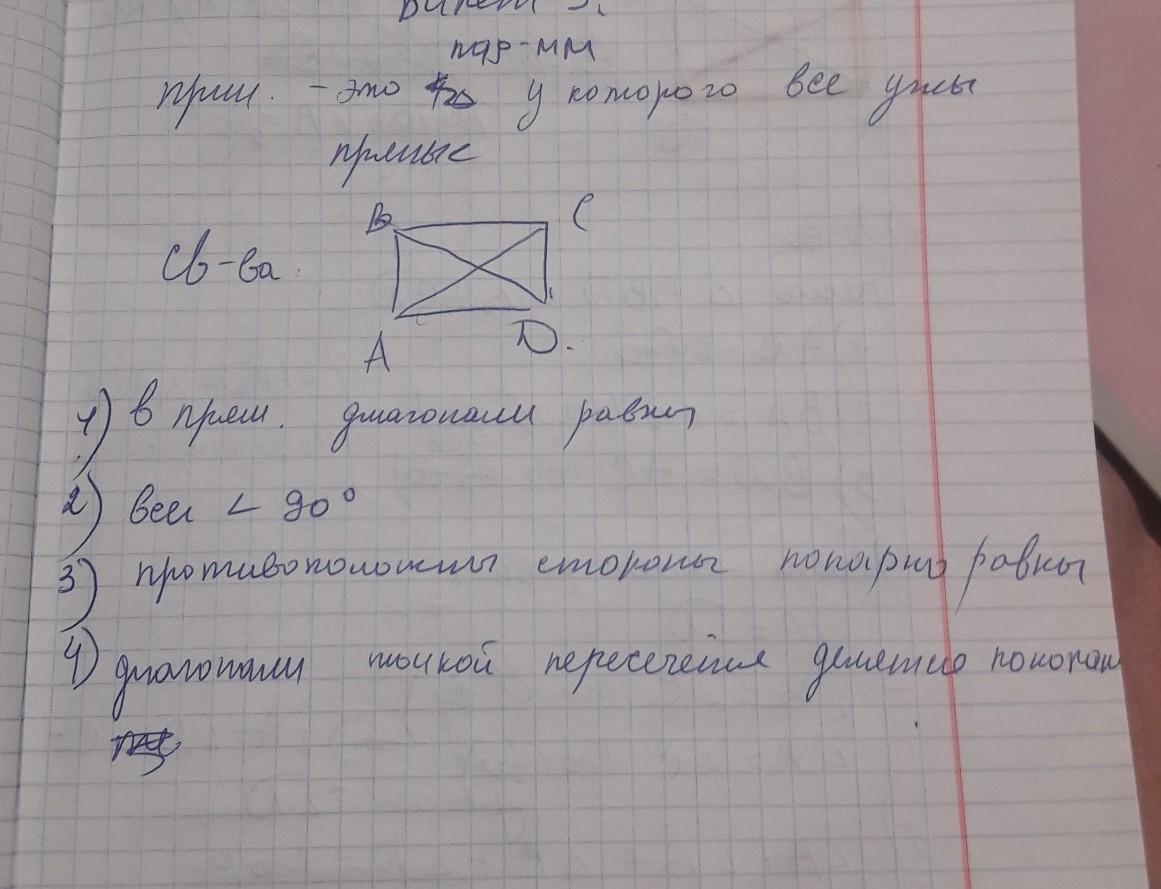 Билет 5.
пар-мм
прям. - это у которого все углы
прямые
Св-ва:
B C
A D.
1) в прям. диагонали равны
2) все < 90°
3) противоположны стороны попарно равны
4) диагонали точкой пересечения делятся пополам